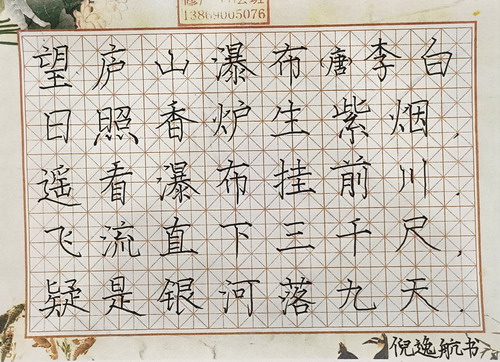 13869005076
望庐山瀑布 唐 李白
日照香炉生紫烟,
遥看瀑布挂前川.
飞流直下三千尺,
疑是银河落九天.
倪逸航书